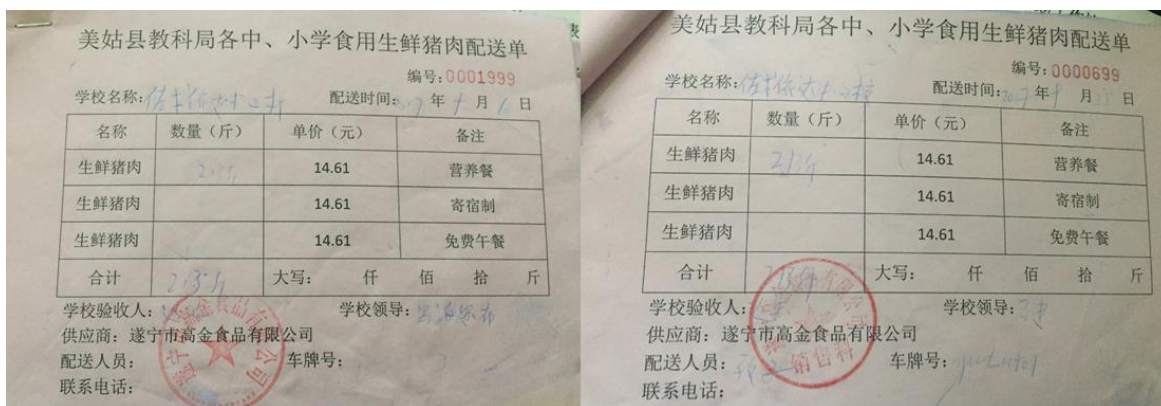 美姑县教科局各中、小学食用生鲜猪肉配送单
编号:0001999
学校名称: 配送时间: 2017 年 9 月 日
名称 数量(斤) 单价(元) 备注
生鲜猪肉 14.61 营养餐
生鲜猪肉 14.61 寄宿制
生鲜猪肉 14.61 免费午餐
合计 大写: 仟 佰 拾 斤
学校验收人: 学校领导:
供应商:遂宁市高金食品有限公司
配送人员: 车牌号:
联系电话:
美姑县教科局各中、小学食用生鲜猪肉配送单
编号:0000699
学校名称: 配送时间: 2017 年 9 月 25 日
名称 数量(斤) 单价(元) 备注
生鲜猪肉 213斤 14.61 营养餐
生鲜猪肉 14.61 寄宿制
生鲜猪肉 14.61 免费午餐
合计 大写: 仟 佰 拾 斤
学校验收人: 学校领导:
供应商:遂宁市高金食品有限公司
销售科
配送人员: 车牌号:
联系电话: